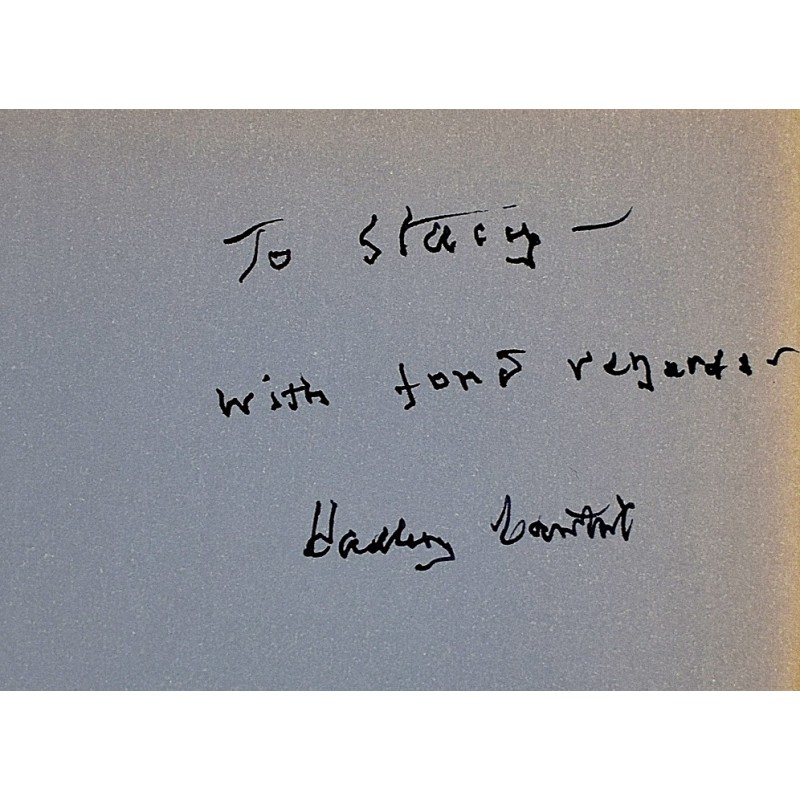 To Stacy —
with fond regards —
Hadley